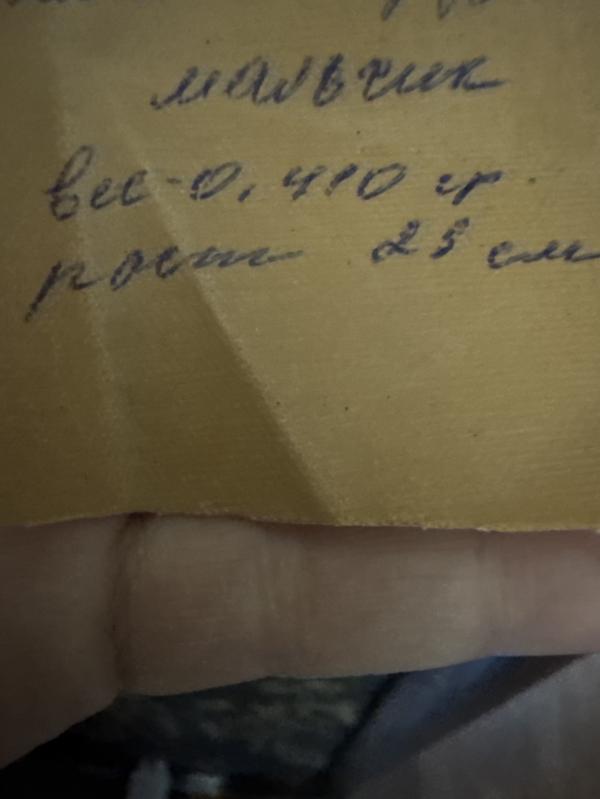 мальчик
вес-0,410 гр
рост 23 см